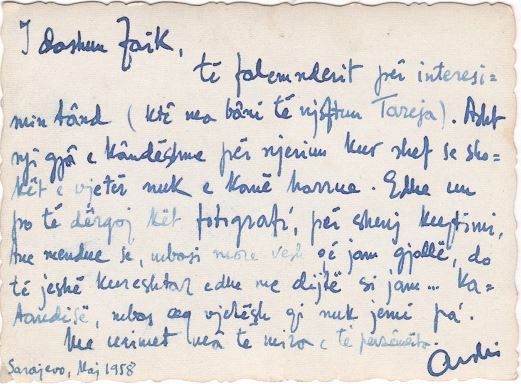 I dashun Zaik,
të falemnderit për interesi=
min tând (ktê na bâni të njoftun Tareja). Asht
nji gjâ e kândëshme për njeriun kur shef se sho=
kët e vjetër nuk e kanë harrue. Edhe un
po të dërgoj kët fotografi, për shenj kujtimi,
tue mendue se, mbasi more vesh që jam gjallë, do
të jeshë kureshtar edhe me dijtë si jam... Ka=
tandisë, mbas aq vjetësh qi nuk jemi pâ.
Me urimet mâ të mira e të përzemërta
Sarajevo, Maj 1958